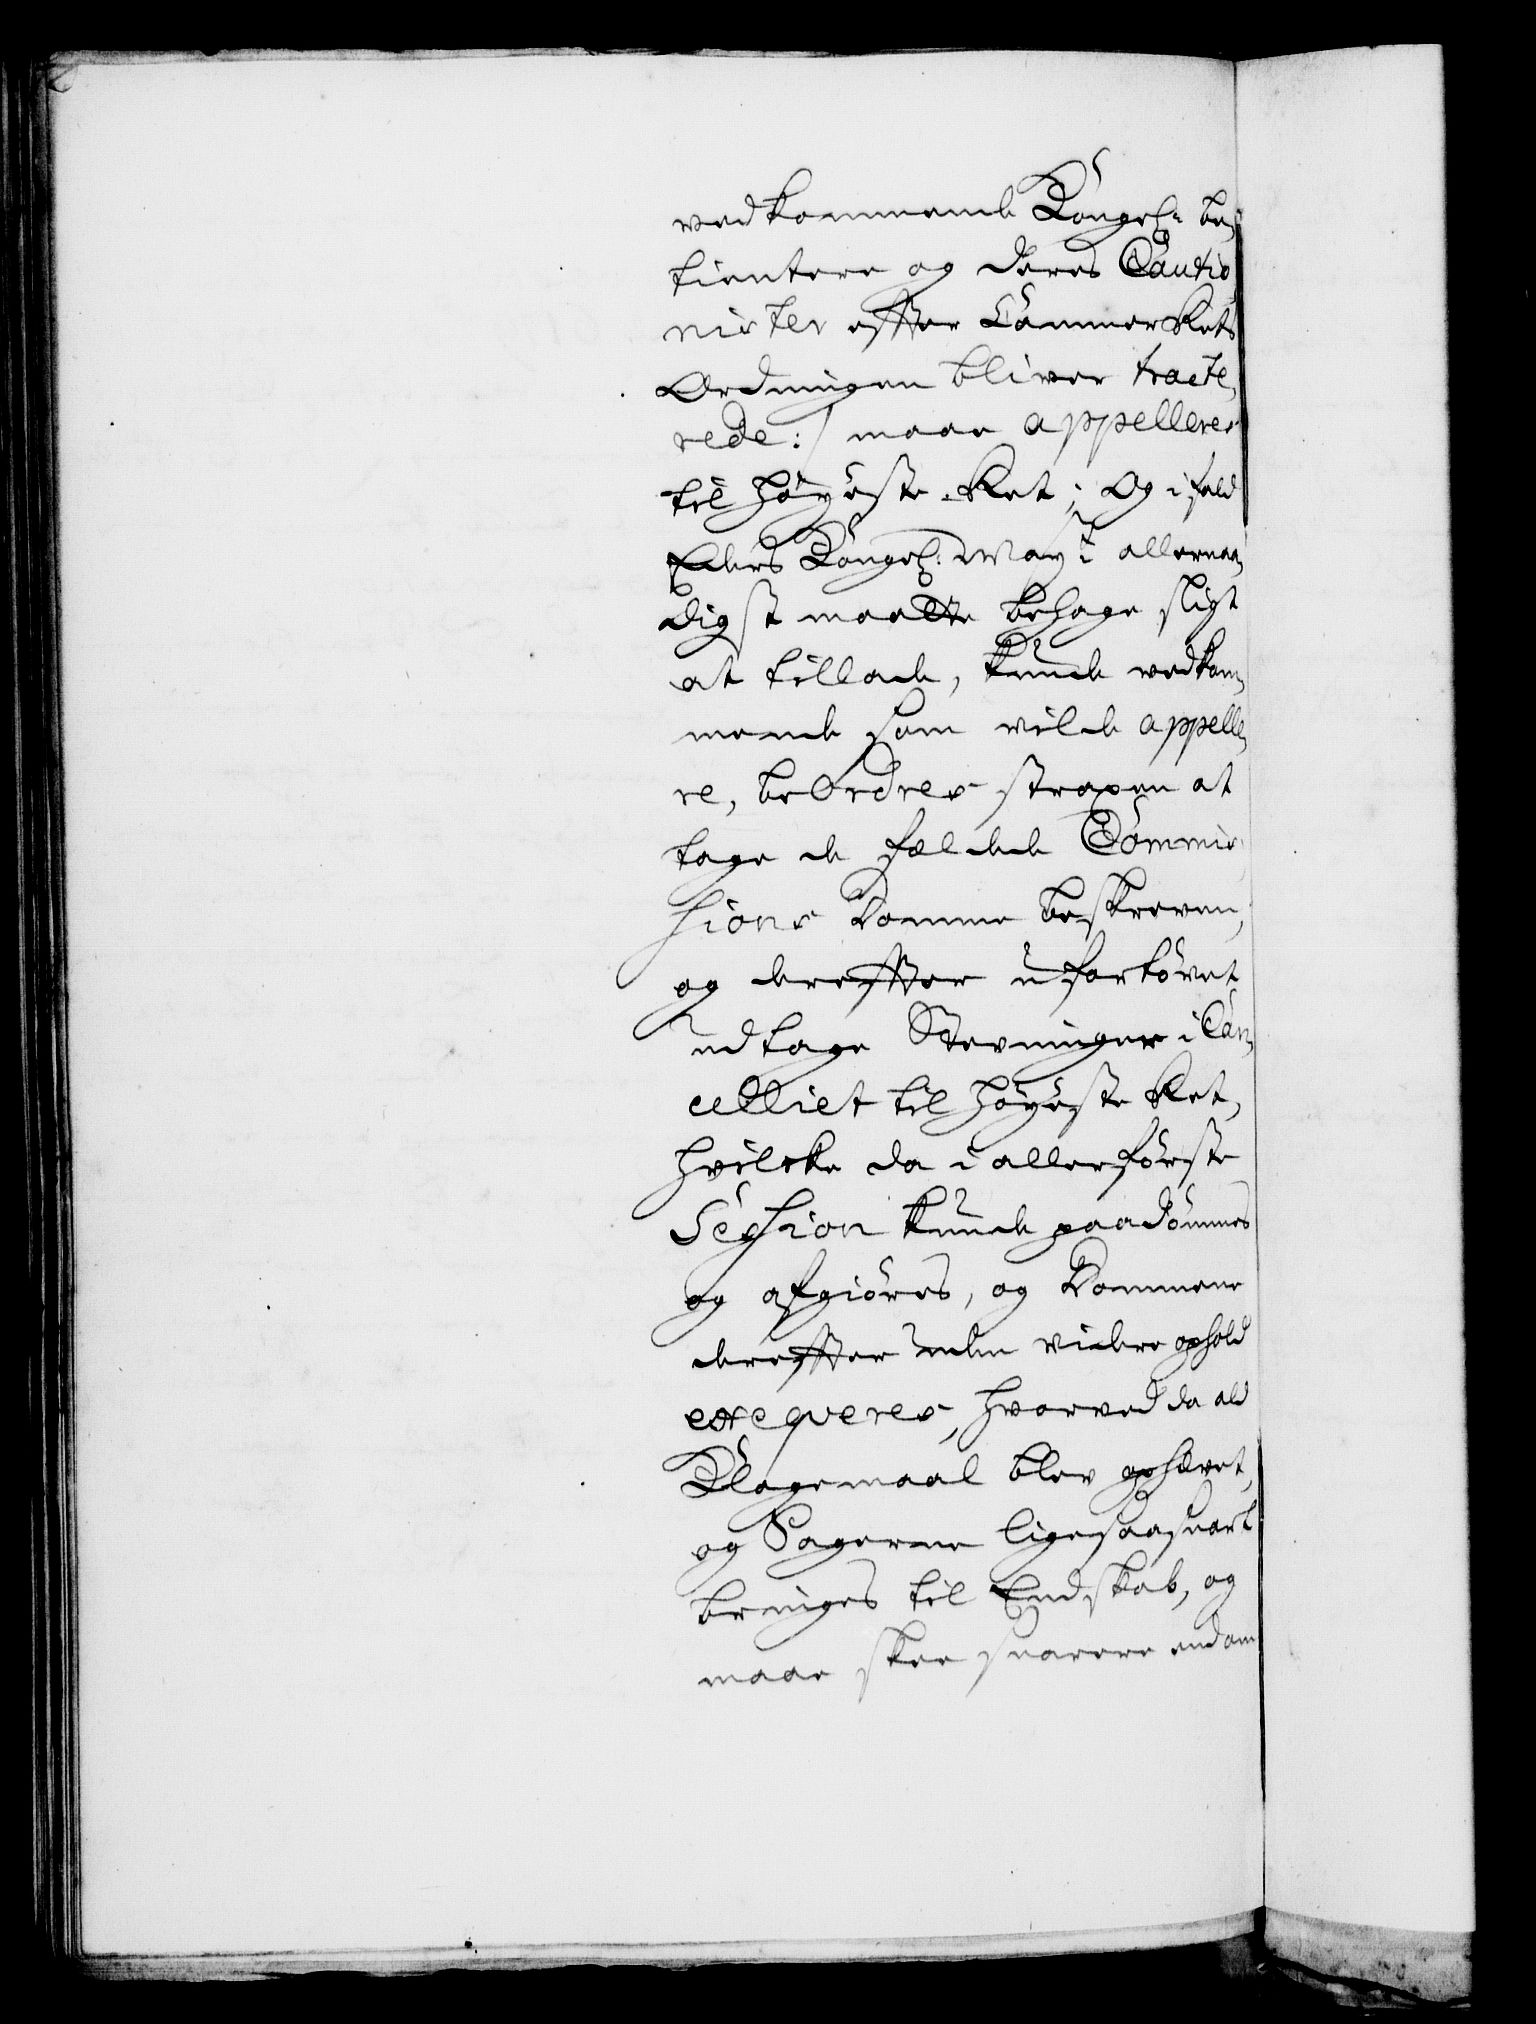 vedkommende Kongel: be,
tientere og deres Cautio
nister effter Cammer Rets
Ordningen bliver tracte,
rede:/ maae appelleres
til høyeste Ret; Og i fald
Eders Kongel: May:t allernaa,
digst maatte behage sligt
at tillade, kunde vedkom,
mende som vilde appelle,
re, beOrdres straxen at
tage de fældede Commis,
sions Domme beskreven,
og dereffter ufortøvet
udtage Stevninger i Can,
celliet til høyeste Ret,
hvilcke da i allerførste
Session kunde paadømmes
og afgiøres, og Dommene
dereffter uden videre ophold
exeqveres, hvorved da ald
Klagemaal blev ophævet,
og Sagerne ligesaasnart
bringes til Endskab, og
maae skee snarere end om